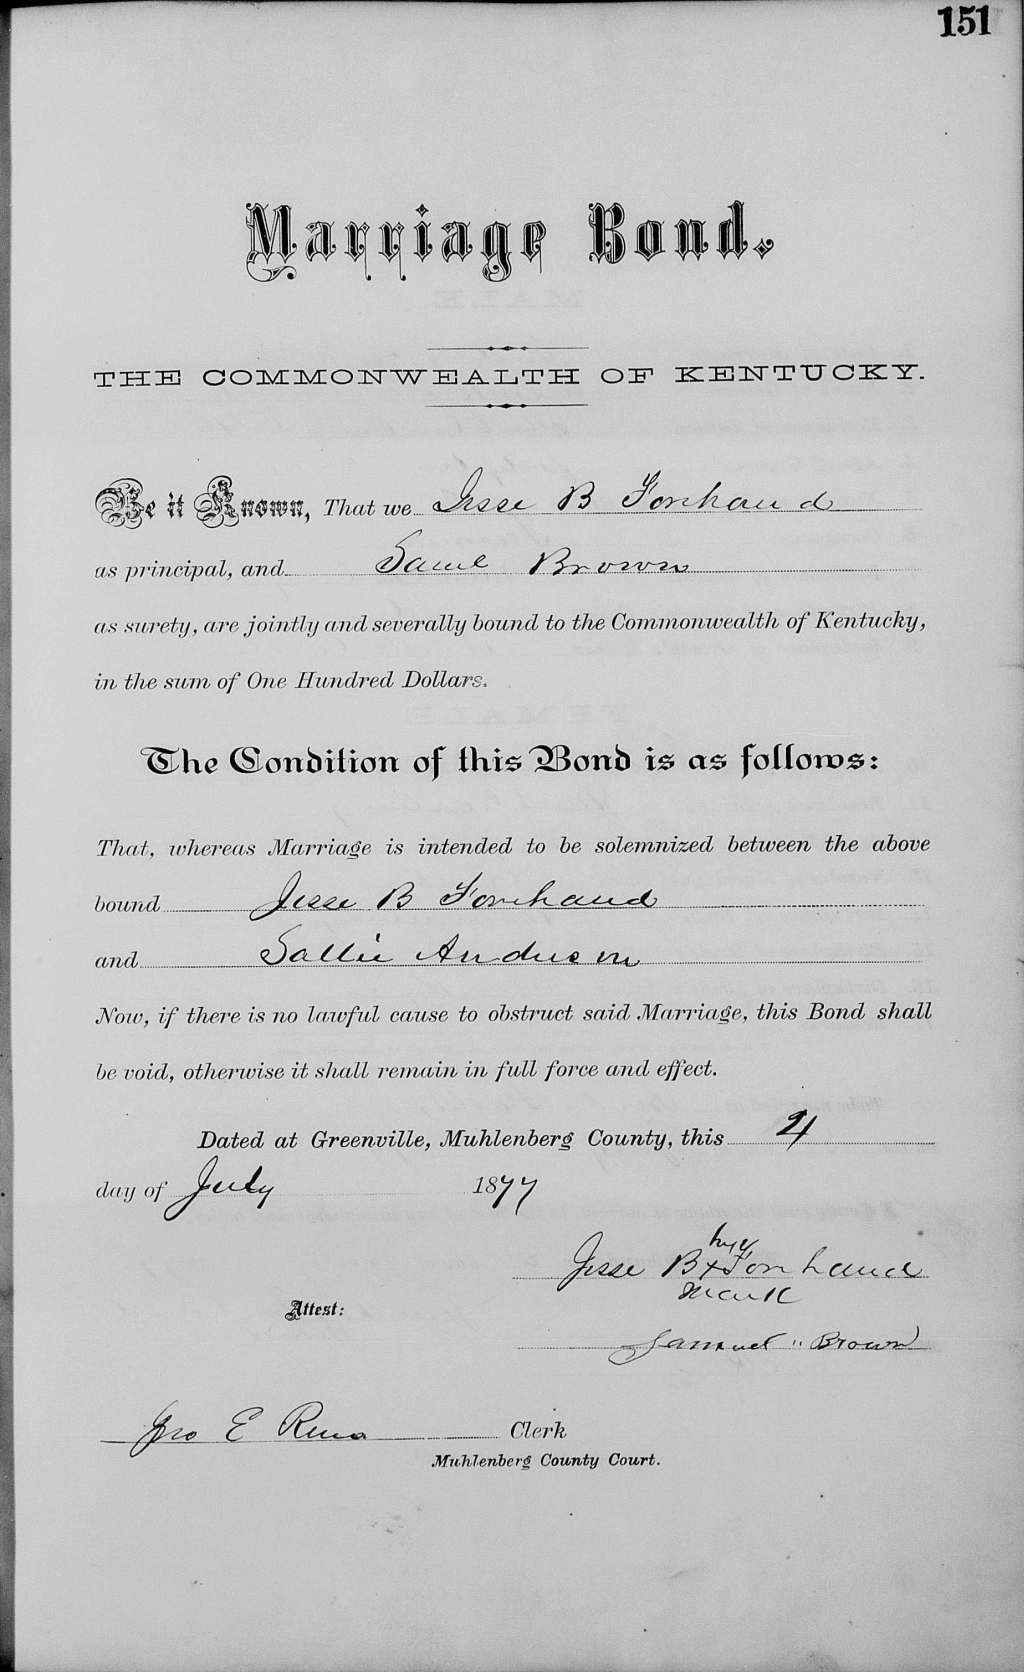 151
Marriage Bond.
THE COMMONWEALTH OF KENTUCKY.
Be it Known, That we Jesse B Forehand
as principal, and Saml Brown
as surety, are jointly and severally bound to the Commonwealth of Kentucky,
in the sum of One Hundred Dollars.
The Condition of this Bond is as follows:
That, whereas Marriage is intended to be solemnized between the above
bound Jesse B Forehand
and Sallie Anderson
Now, if there is no lawful cause to obstruct said Marriage, this Bond shall
be void, otherwise it shall remain in full force and effect.
Dated at Greenville, Muhlenberg County, this
day of July 1877
his
Jesse B x Forehand
mark
Attest:
Samuel " Brown
Jno E Reno Clerk
Muhlenberg County Court.